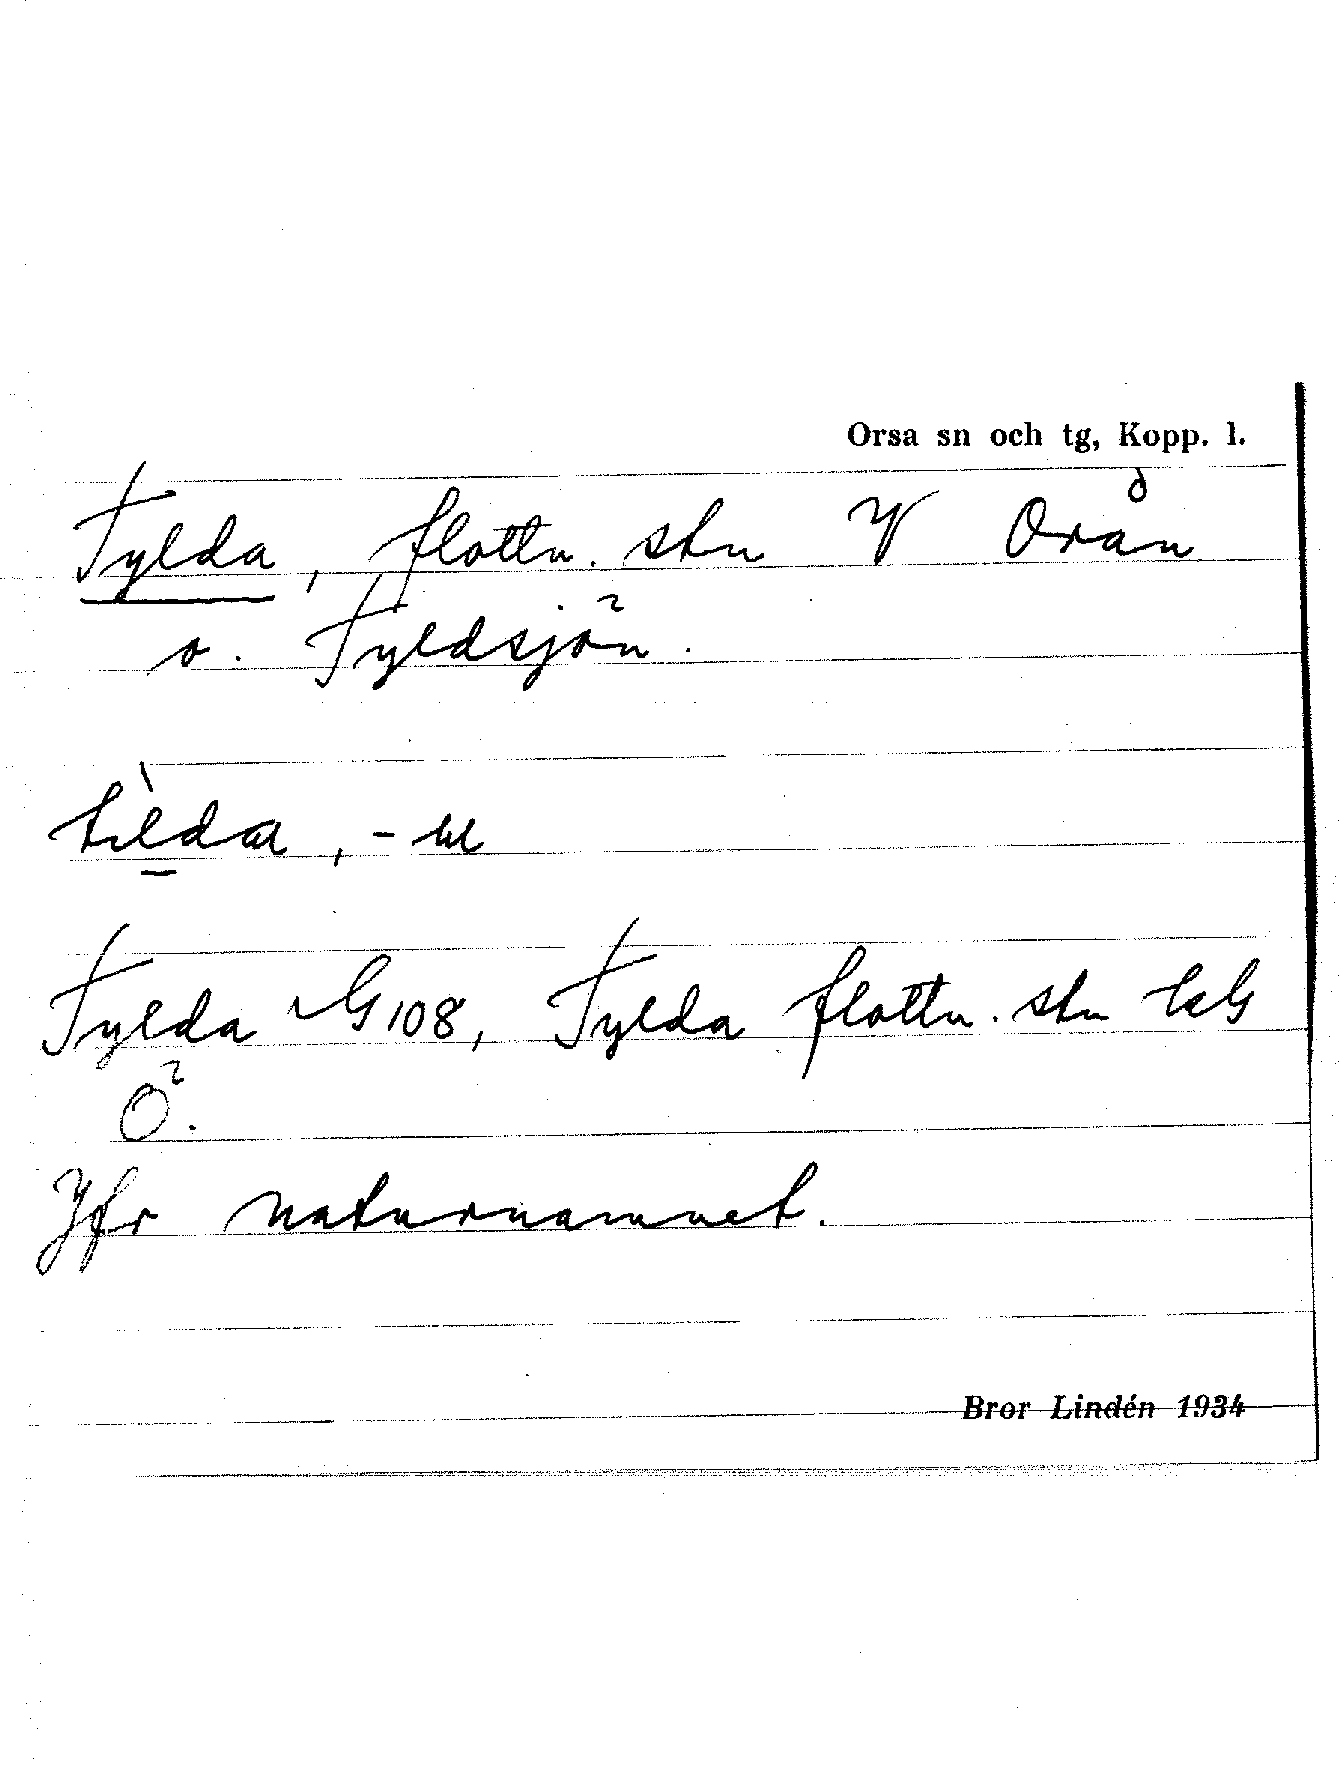 Orsa sn och tg, Kopp. l.
Tylda, flottn. stn V Orån
o. Tyldsjön.
Tylda G 108, Tylda flottn. stn
Ö.
Jfr naturnamnet.
Bror Lindén 1934